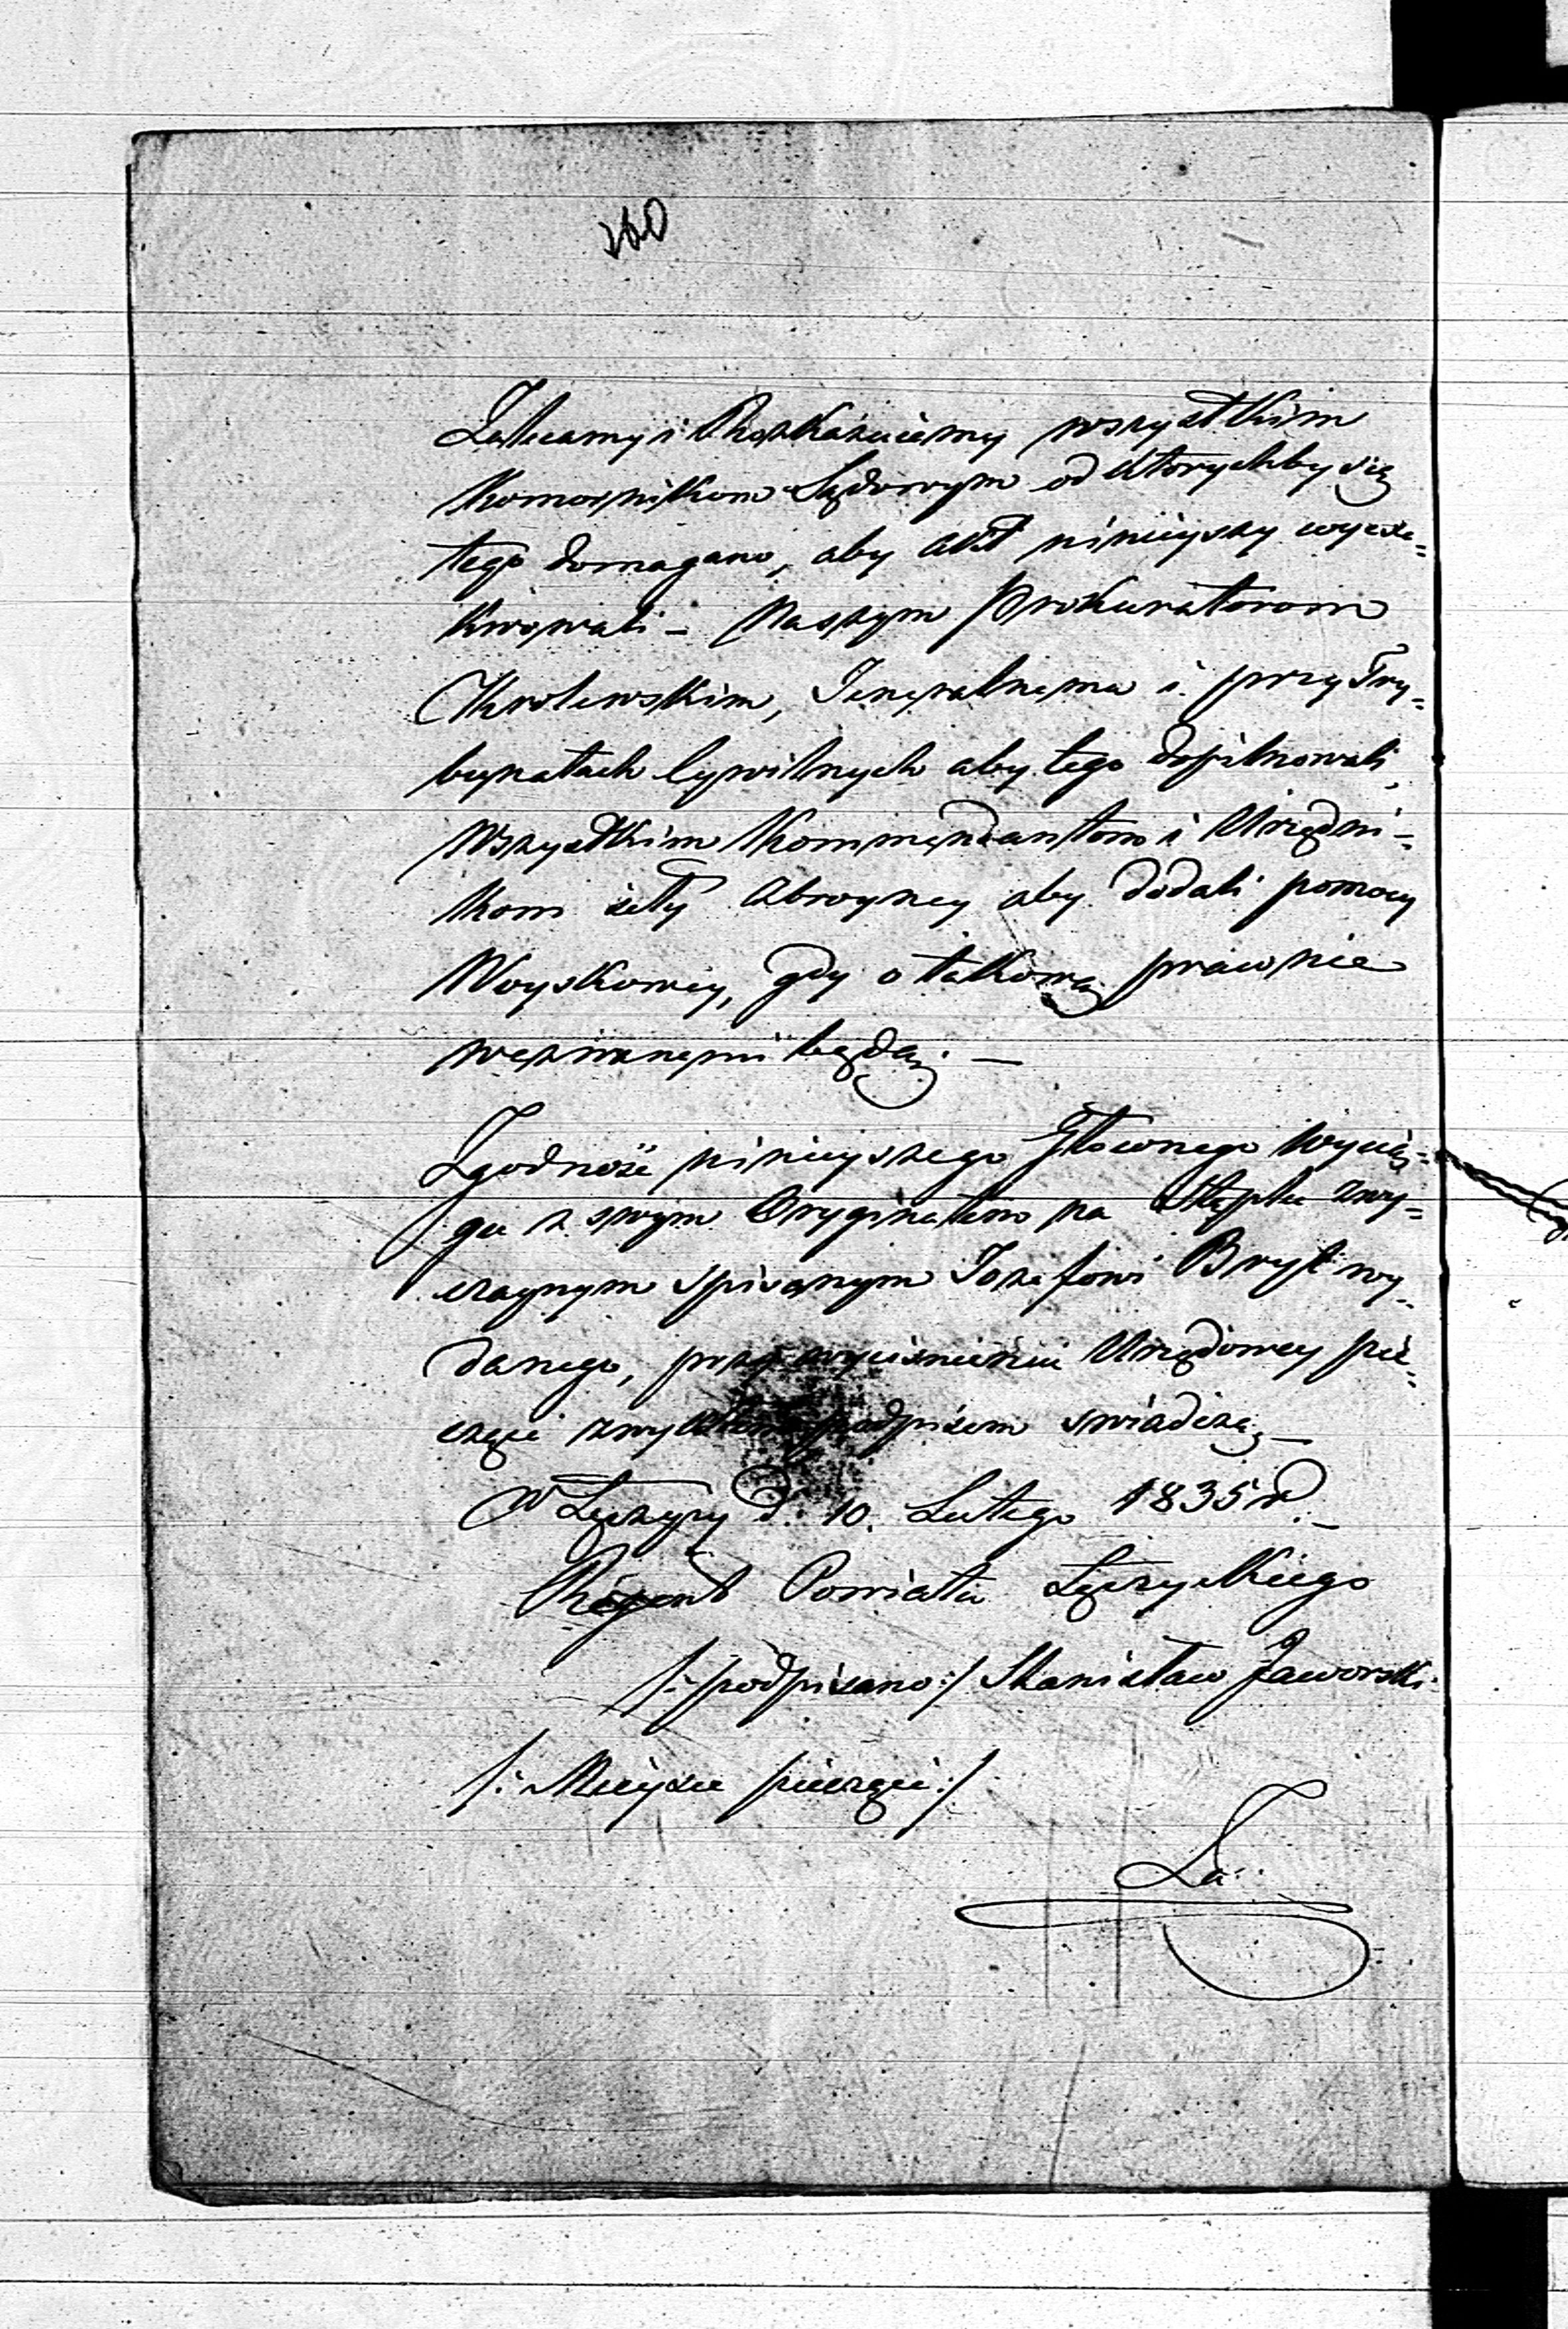 260
Zalecamy i Rozkazuiemy wszystkim
Komornikom Sądowym od ktorychby się
tego domagano, aby Akt ninieyszy wyexe=
kwowali – Naszym Prokuratorom
Krolewskim, Jeneralnemu i przy Try=
bunałach Cywilnych aby tego dopilnowali,
Wszystkim Kommendantom i Urzędni=
kom siły zbroyney aby dodali pomocy
Woyskowey, gdy o takową prawnie
wezwanemi będą. —
Zgodność ninieyszego Głownego Wycią=
gu z swym Oryginałem na Stęplu zwy=
czaynym spisanym Jozefowi Bryl wy=
danego, przy wyciśnieniu Urzędowey pie=
częci zwykłem podpisem świadczę —
W Łęczycy d. 10. Lutego 1835 r. —
Regent Powiatu Łęczyckiego
/: podpisano :/ Stanisław Jaworski
/: Mieysce pieczęci :/